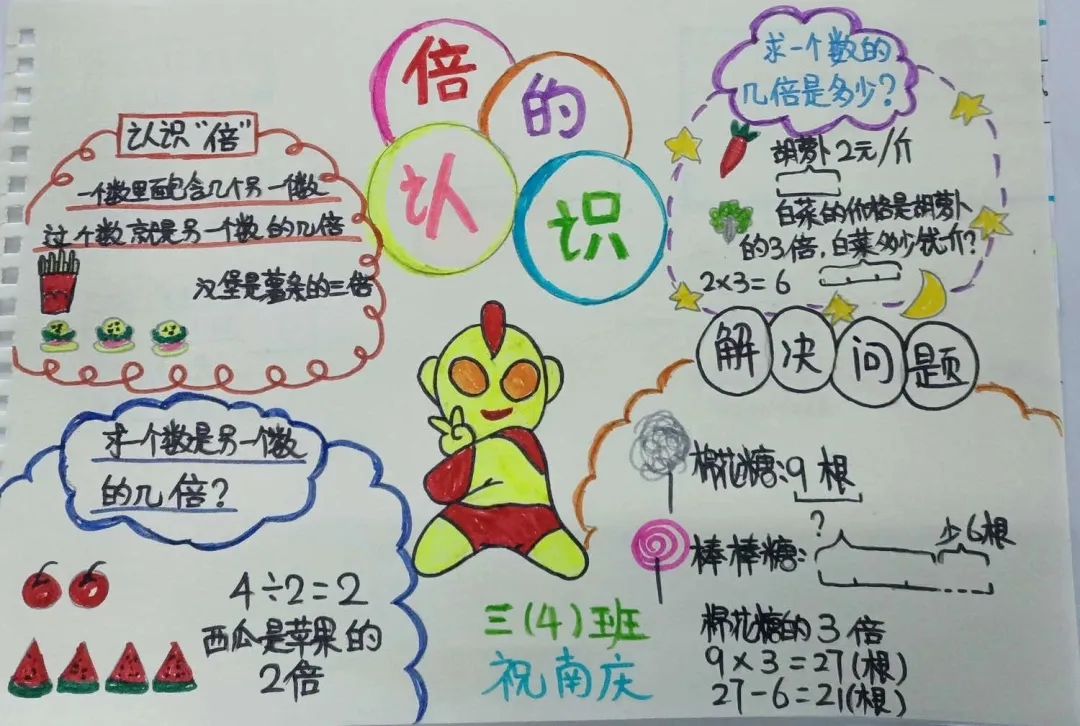 倍的
认识
认识“倍”
一个数里面包含几个另一个数
这个数就是另一个数的几倍
汉堡是薯条的三倍
求一个数的
几倍是多少?
胡萝卜2元/斤
白菜的价格是胡萝卜
的3倍,白菜多少钱1斤?
2×3=6
解决问题
求一个数是另一个数
的几倍?
4÷2=2
西瓜是苹果的
2倍
棉花糖:9根
? 少6根
棒棒糖:
棉花糖的3倍
9×3=27(根)
27-6=21(根)
三(4)班
祝南庆